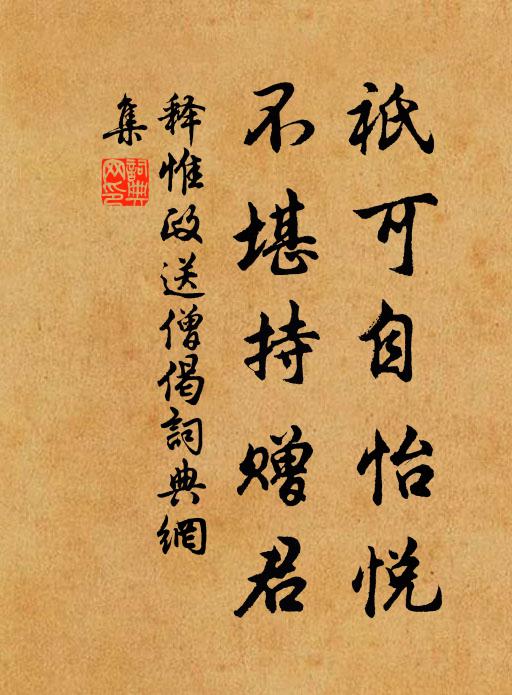 祇可自怡悦
不堪持赠君
释惟政送僧偈詞典網
集
詞典
网印